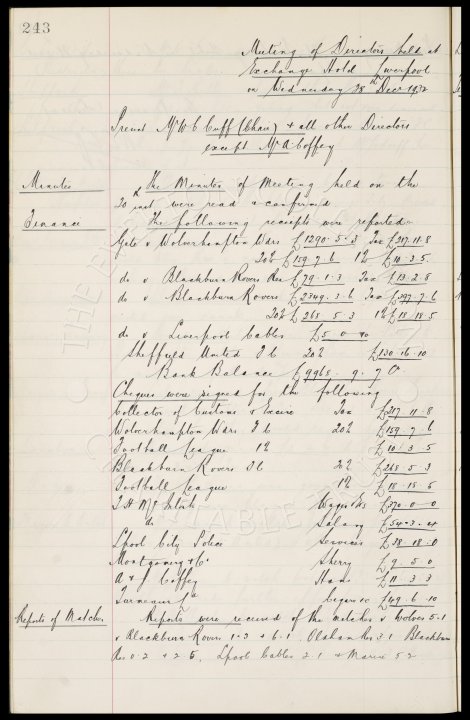 243
Meeting of Directors held at
Exchange Hotel Liverpool
on Wednesday 28th Decr 1932
Present Mr W C Cuff (Chair) & all other Directors
except Mr A Coffey
Minutes
The Minutes of Meeting held on the
20 inst were read & confirmed
Finance
The following receipts were reported
Gate v Wolverhampton Wdrs £1290.5.3 Tax £217.11.8
20% £159.7.6 1% £10.3.5
do v Blackburn Rovers Res £79.1.3 Tax £13.2.8
do v Blackburn Rovers £2349.3.6 Tax £397.7.6
20% £265.5.3 1% £18.18.5
do v Liverpool Cables £5.0.10
Sheffield United F C 20% £130.16.10
Bank Balance £9968.9.7
Cheques were signed for the following
Collector of Customs & Excise Tax £217.11.8
Wolverhampton Wdrs F C 20% £159.7.6
Football League 1% £10.3.5
Blackburn Rovers F C 20% £265.5.3
Football League 1% £18.18.5
T H McIntosh Wages &c £370.0.0
do Salary £54.3.4
Lpool City Police Services £38.18.0
Montgomery & Co Sherry £9.5.0
A & J Coffey Hams £11.3.3
Turmeaus Ld Cigars &c £49.6.10
Reports of Matches
Reports were received of the matches v Wolves 5.1
v Blackburn Rovers 1.3 & 6.1. Oldham Res 3.1 Blackburn
Res 0.2 & 2.5. Lpool Cables 2.1 & Marine 5.2